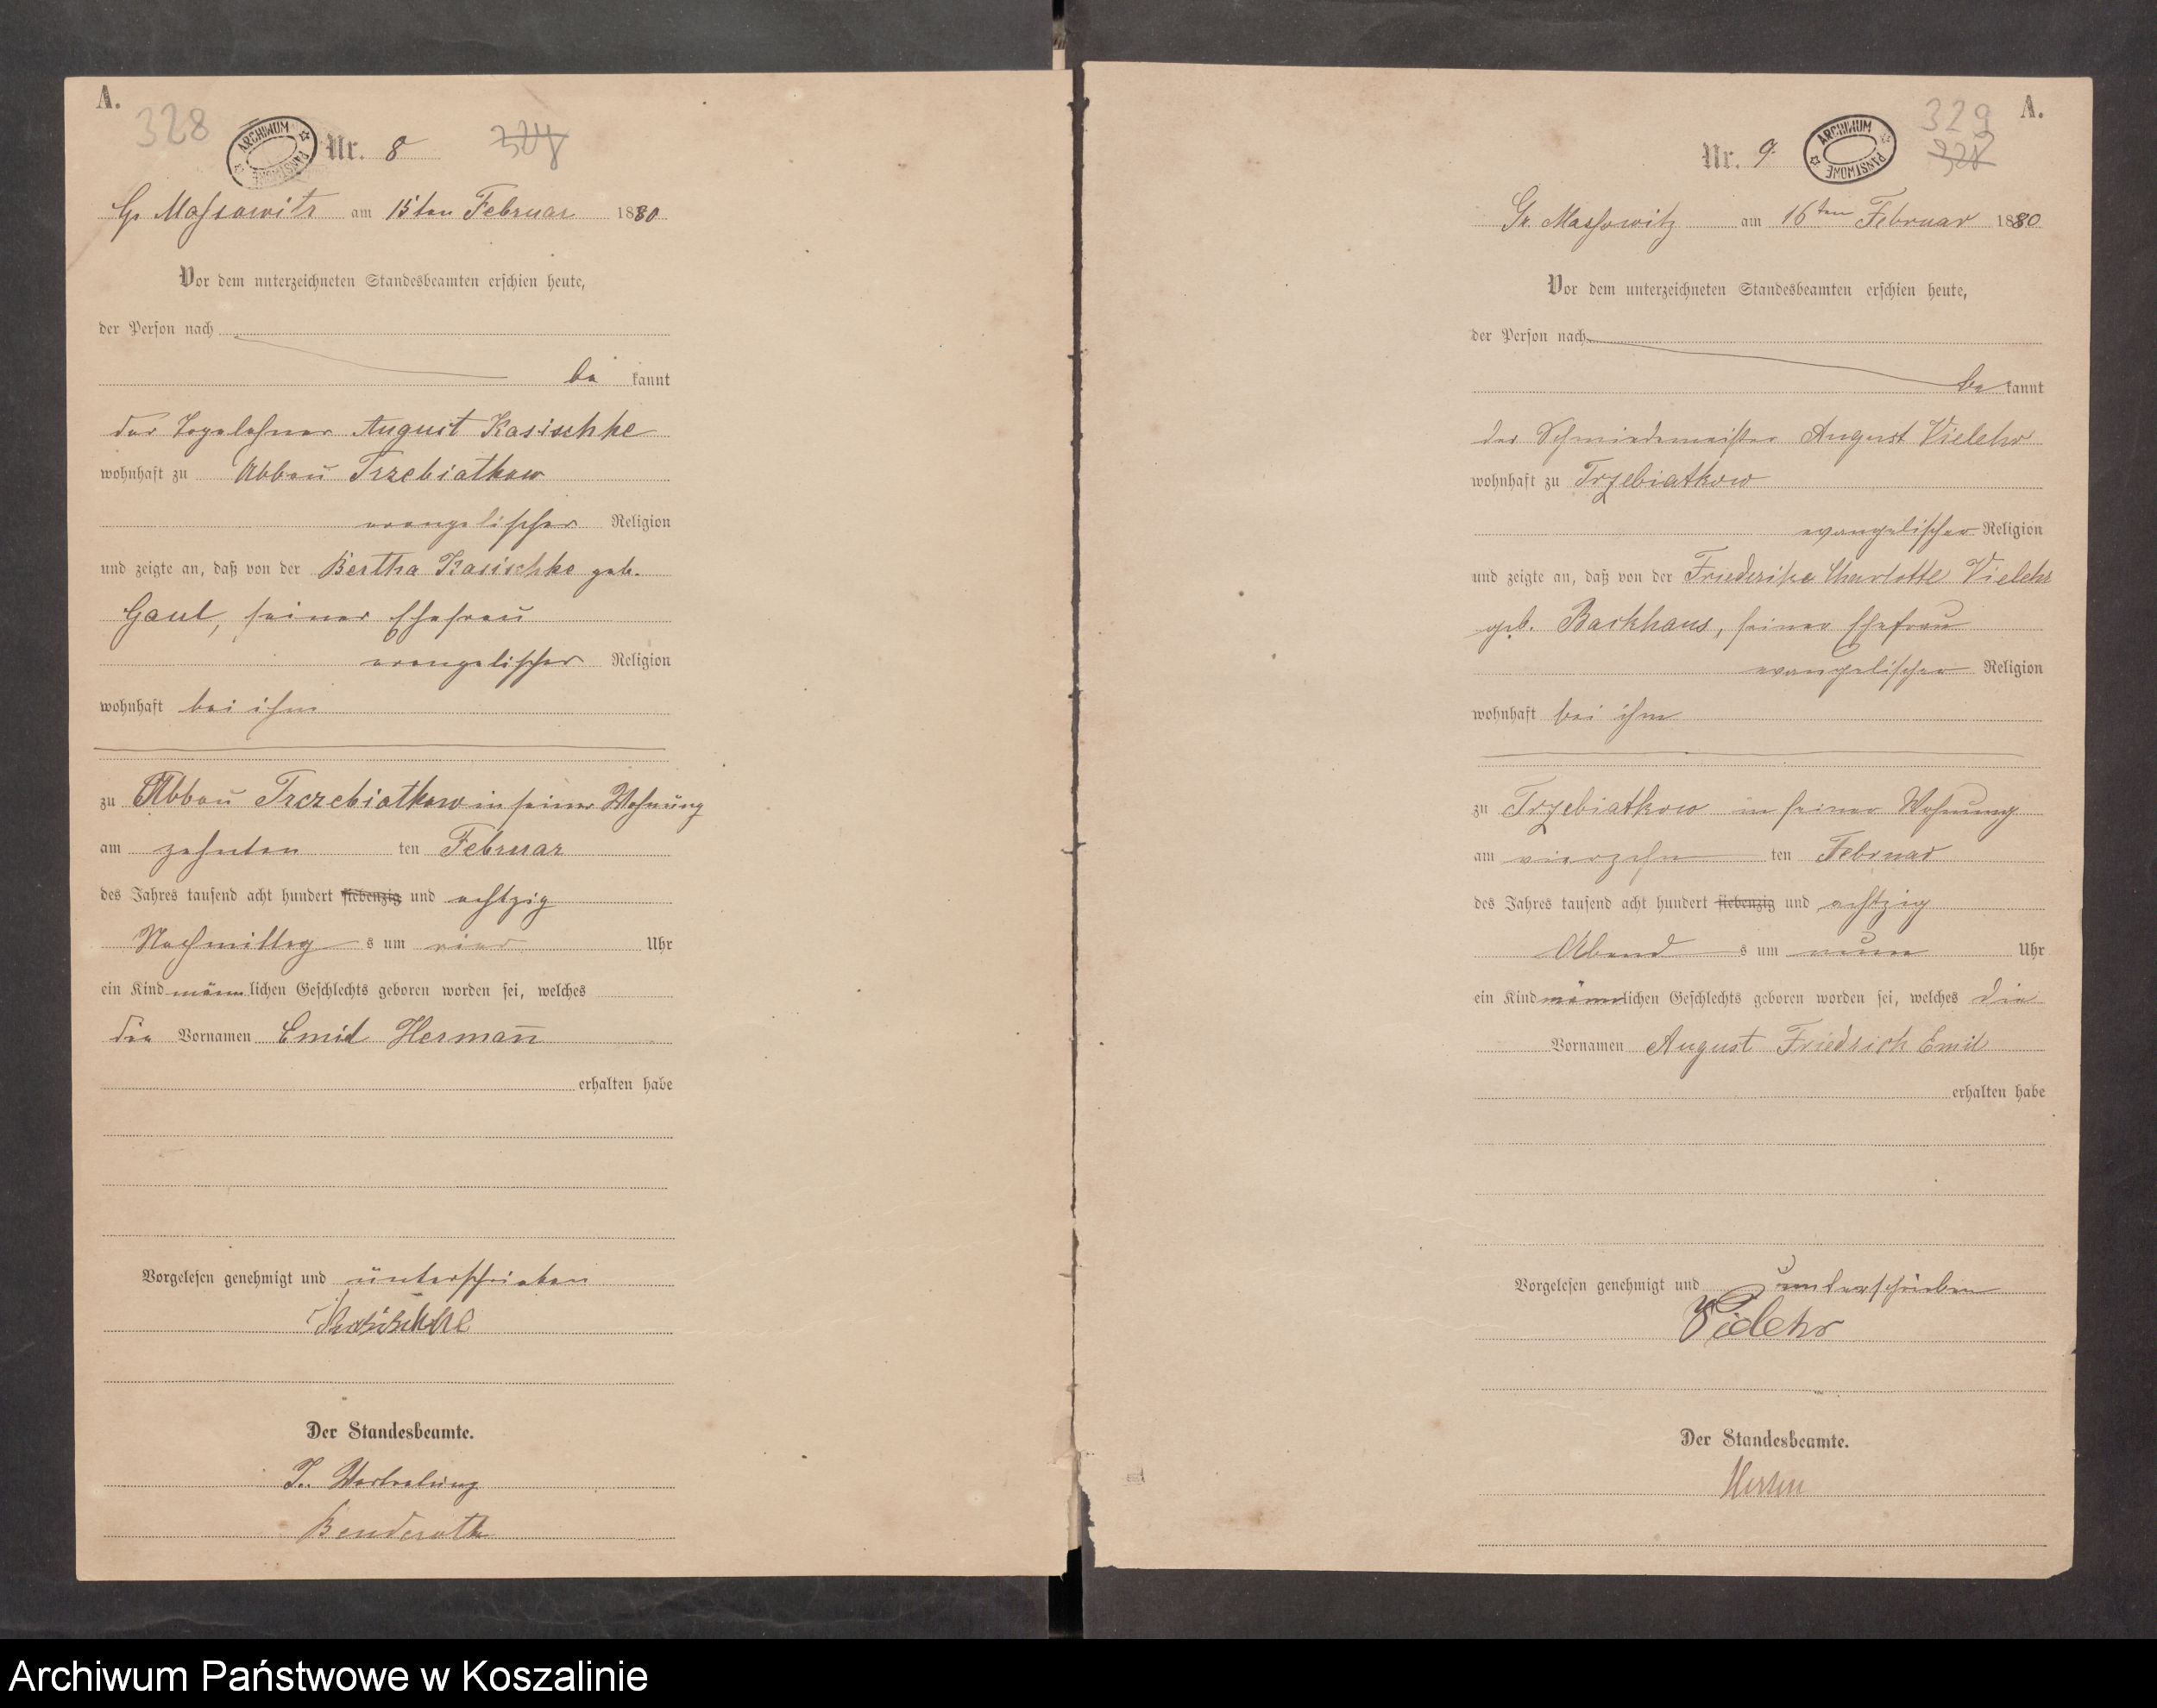 A.
328
ARCHIWUM PAŃSTWOWE
Nr. 8
Gr Massowitz am 15ten Februar 1880
Vor dem unterzeichneten Standesbeamten erschien heute,
der Person nach
be kannt
der Tagelöhner August Kasischke
wohnhaft zu Abbau Trzebiatkow
evangelischer Religion
und zeigte an, daß von der Bertha Kasischke geb.
Gaul, seiner Ehefrau
evangelischer Religion
wohnhaft bei ihm
zu Abbau Trczebiatkow in seiner Wohnung
am zehnten ten Februar
des Jahres tausend acht hundert siebenzig und achtzig
Nachmittag s um vier Uhr
ein Kind männ lichen Geschlechts geboren worden sei, welches
die Vornamen Emil Hermann
erhalten habe
Vorgelesen genehmigt und unterschrieben
Kasischke
Der Standesbeamte.
In Vertretung
Benderoth
329
A.
328
Nr. 9
ARCHIWUM PAŃSTWOWE
Gr. Massowitz am 16ten Februar 1880
Vor dem unterzeichneten Standesbeamten erschien heute,
der Person nach
be kannt
der Schmiedemeister August Vielehr
wohnhaft zu Trzebiatkow
evangelischer Religion
und zeigte an, daß von der Friederike Charlotte Vielehr
geb. Backhaus, seiner Ehefrau
evangelischer Religion
wohnhaft bei ihm
zu Trzebiatkow in seiner Wohnung
am vierzehn ten Februar
des Jahres tausend acht hundert siebenzig und achtzig
Abend s um neun Uhr
ein Kind männlichen Geschlechts geboren worden sei, welches die
Vornamen August Friedrich Emil
erhalten habe
Vorgelesen genehmigt und unterschrieben
Vielehr
Der Standesbeamte.
Archiwum Państwowe w Koszalinie